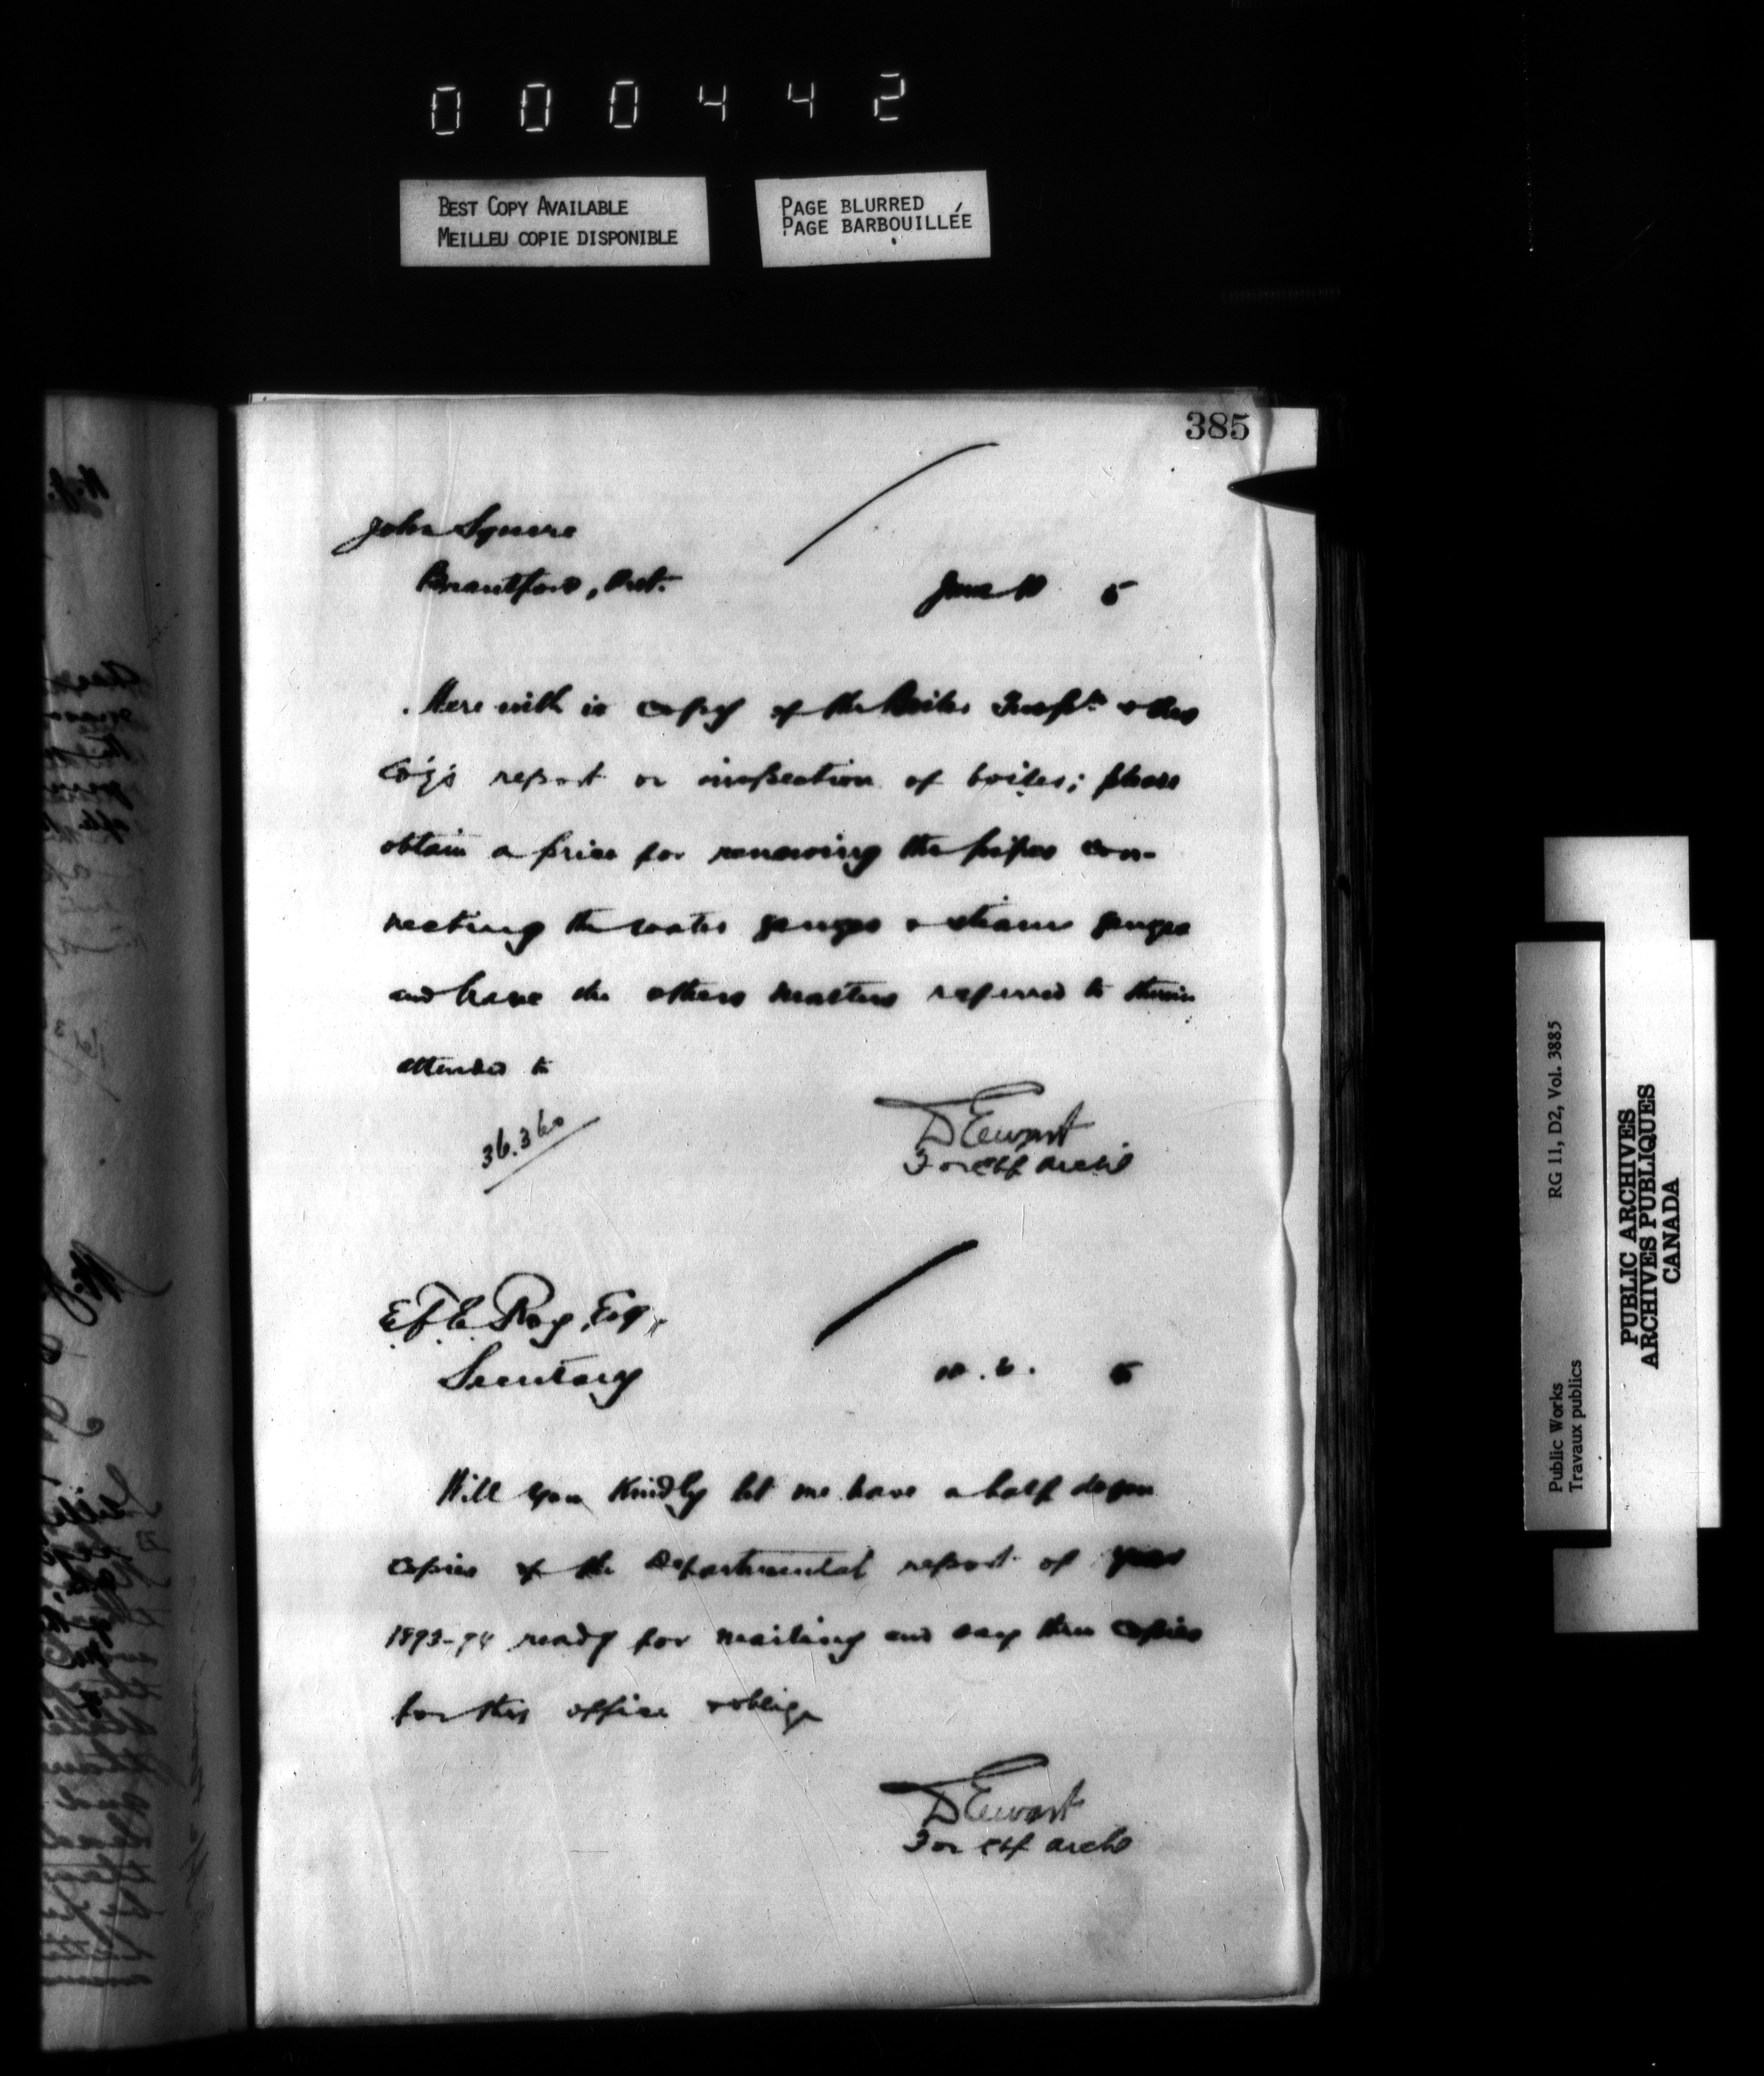 000442
BEST COPY AVAILABLE
MEILLEU COPIE DISPONIBLE
PAGE BLURRED
PAGE BARBOUILLÉE
385
John Squire
Brantford, Ont.
June 10 5
Herewith is copy of the Boiler Insp.n &
Co'y's report on inspection of boiler; please
obtain a price for renewing the pipes con-
necting the water gauges & steam gauges
and have the others matters referred to therein
attended to
36.360
D Ewart
For Chf Archt
E F E Roy, Esq,
Secretary
10.6. 5
Will you Kindly let me have a half dozen
copies of the Departmental report of year
1893-94 ready for mailing and say three copies
for this office & oblige
D Ewart
For Chf Archt
Public Works
Travaux publics
RG 11, D2, Vol. 3885
PUBLIC ARCHIVES
ARCHIVES PUBLIQUES
CANADA